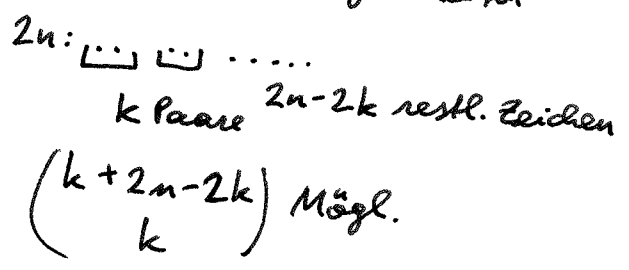 2n: .....
k Paare 2n-2k restl. Zeichen
(k+2n-2k
k) Mögl.